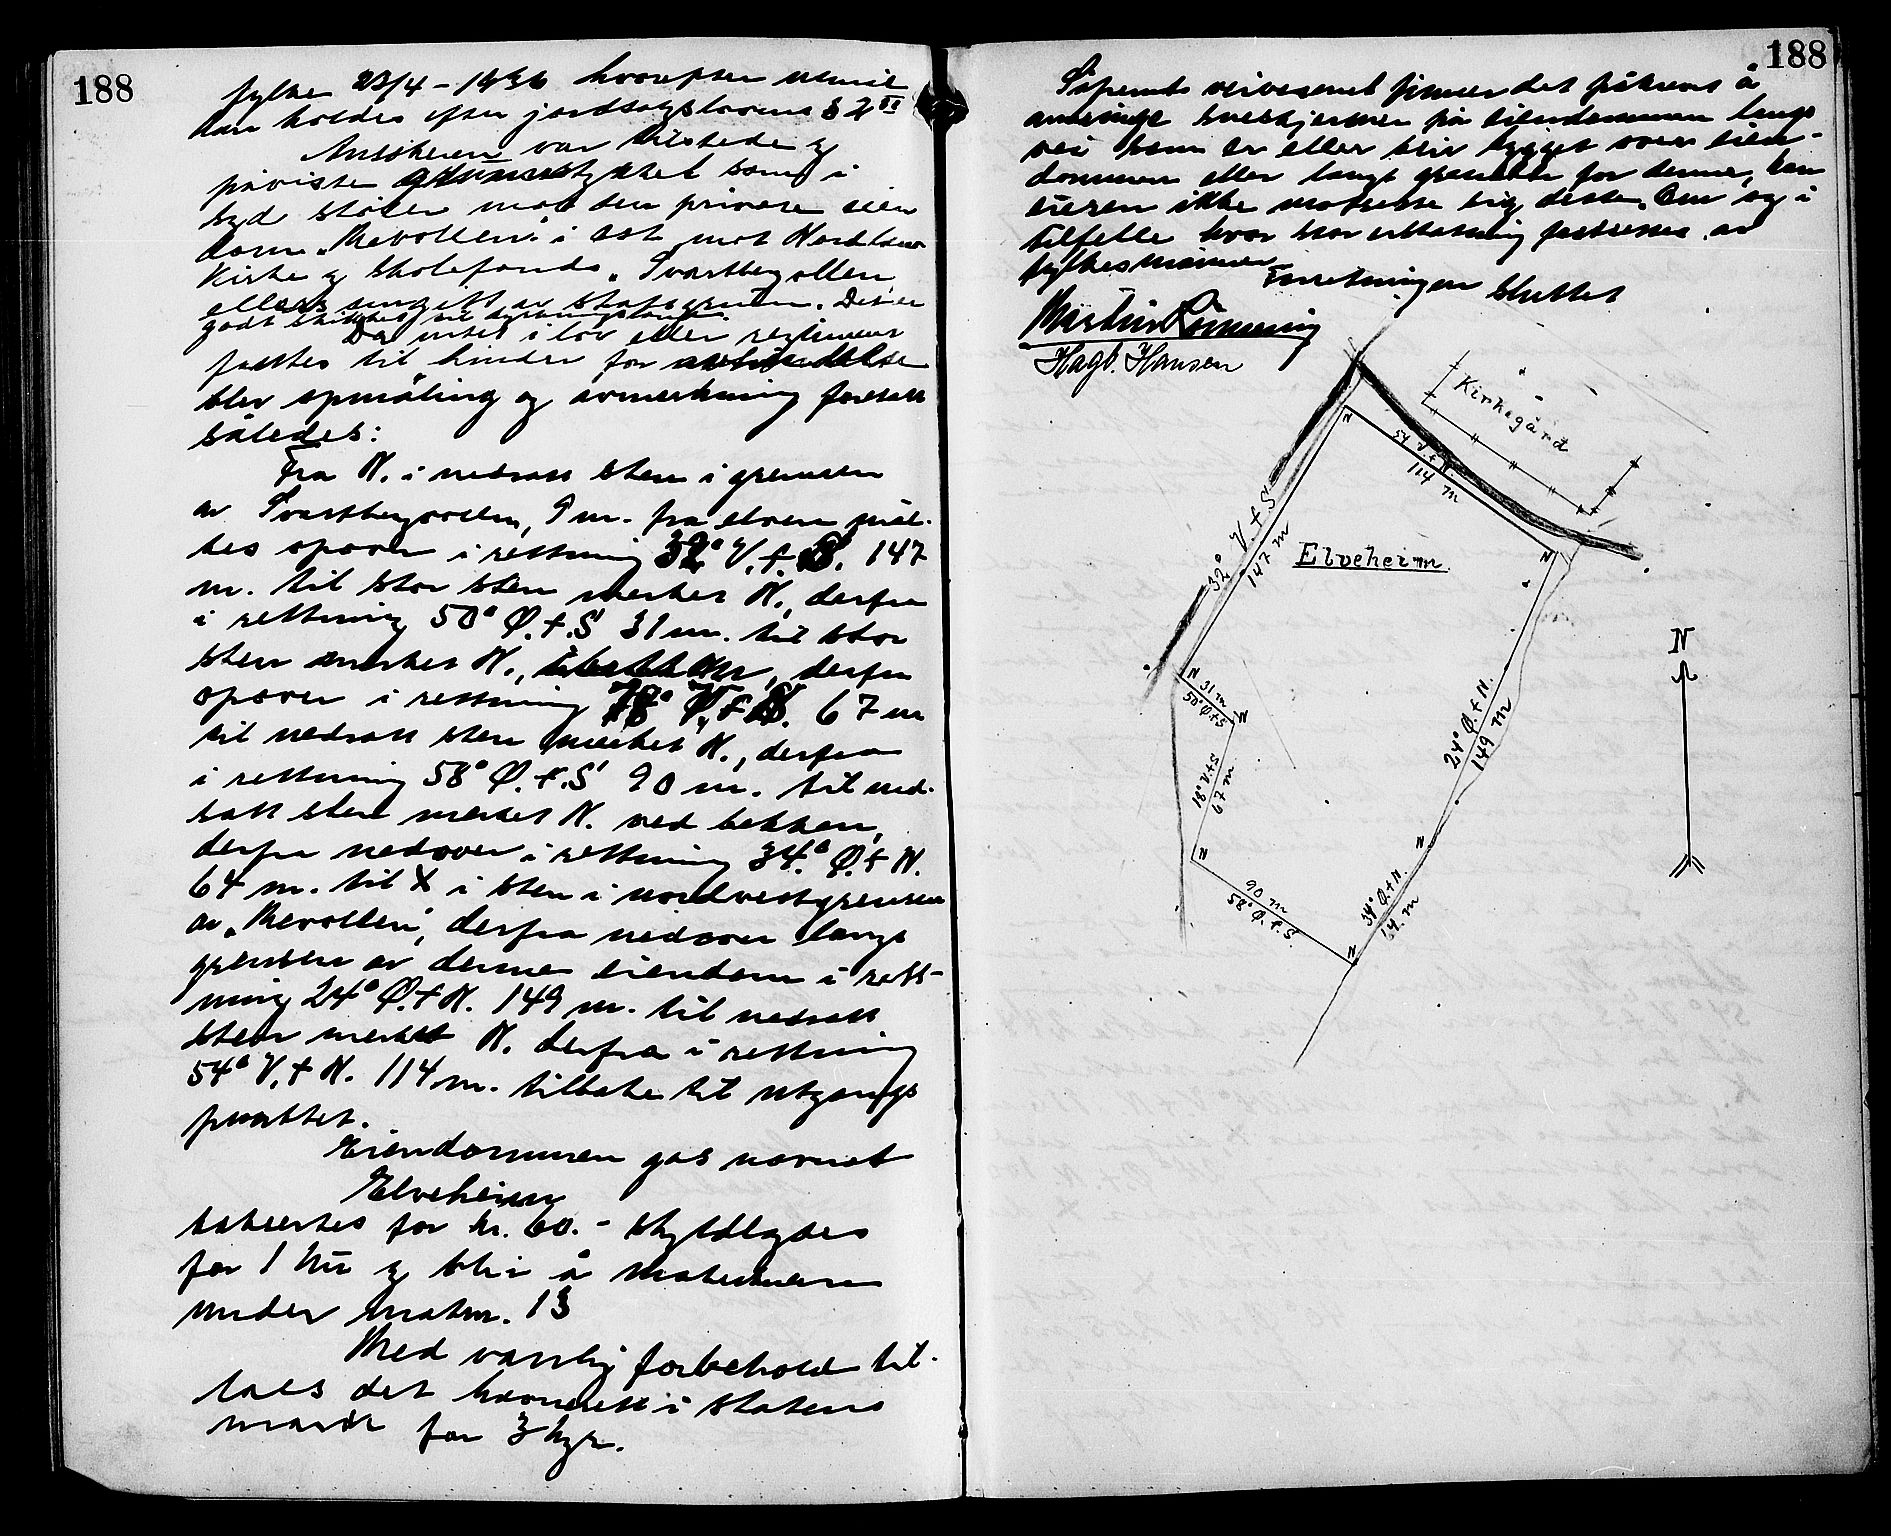 188
fylke 23/4 - 1936 hvorefter utmål
kan holdes efter jordsalgslovens § 2
Ansøkeren var tilstede og
påviste grunnstykket som i
syd støter mot den private eien
dom "Mevollen" i øst mot Nordland
kirke og skolefonds "Svartbergvollen
ellers omgitt av statsgrunn. Det er
godt skikket til dyrkningsland.
Da intet i lov eller reglement
fantes til hinder for avhendelse
blev opmåling og avmerkning foretatt
således:
Fra N. i nedsatt sten i grensen
av Svartbergvollen, 9 m. fra elven mål-
tes opover i rettning 32° V.t.S. 147
m. til stor sten merket N., derfra
i rettning 50° Ø.t.S 31 m. til stor
sten merket N., derfra
opover i rettning 18° V.t.S. 67 m
til nedsatt sten merket N., derfra
i rettning 58° Ø.t.S 90 m. til ned-
satt sten merket N. ved bekken,
derfra nedover i rettning 34° Ø.t N.
64 m. til X i sten i nordvestgrensen
av "Mevollen", derfra nedover langs
grensen av denne eiendom i rett-
ning 24° Ø.t N. 149 m. til nedsatt
sten merket N. derfra i rettning
54° V.t N. 114 m. tilbake til utgangs
punktet.
Eiendommen gas navnet
Elveheim
taksertes for kr. 60.- skyldlagdes
for 1 øre og blir å matrikulere
under matnr. 13
Med vanlig forbehold til-
laes det havnerett i statens
mark for 3 kyr.
188
Såfremt veivesenet finner det påkrevet å
anbringe sneskjermer på eiendommen langs
vei som er eller blir bygget over eien-
dommen eller langs grensen for denne, kan
eieren ikke motsette sig dette. Om og i
tilfelle hvor stor erstatning fastsettes av
fylkesmannen
Forretningen sluttet
Martin Rønning
Hagb. Hansen
Kirkegård
54° V.t.N.
114 m
32° V.t.S
147 m
Elveheim
N
N
N
31 m
50° Ø.t.S
N
18° V.t.S
67 m
N
90 m
58° Ø.t.S.
N
34° Ø.t.N.
64 m
N
24° Ø.t.N.
149 m
N